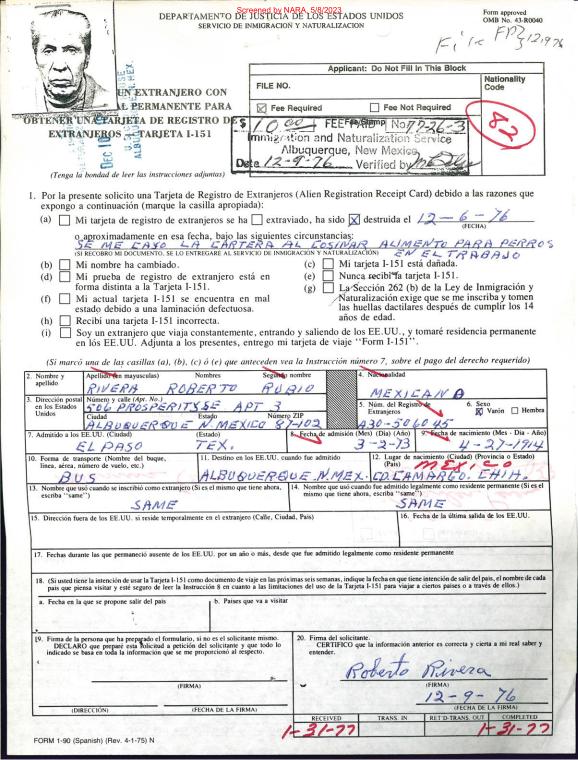 Screened by NARA, 5/8/2023
DEPARTAMENTO DE JUSTICIA DE LOS ESTADOS UNIDOS
SERVICIO DE INMIGRACION Y NATURALIZACION
Form approved
OMB No. 43-R0040
12,976
UN EXTRANJERO CON
AL PERMANENTE PARA
OBTENER UNA TARJETA DE REGISTRO DE
EXTRANJEROS TARJETA I-151
DEC 10
(Tenga la bondad de leer las instrucciones adjuntas)
Applicant: Do Not Fill In This Block
FILE NO.
Nationality
Code
Fee Required
Fee Not Required
42
$10.00 FEE PAID No
Immigration and Naturalization Service
Albuquerque, New Mexico
Date 12-9-76 Verified by
1. Por la presente solicito una Tarjeta de Registro de Extranjeros (Alien Registration Receipt Card) debido a las razones que
expongo a continuación (marque la casilla apropiada):
(a) Mi tarjeta de registro de extranjeros se ha extraviado, ha sido X destruida el 12-6-76
(FECHA)
o aproximadamente en esa fecha, bajo las siguientes circunstancias:
SE ME CAYO LA CARTERA AL COSINAR ALIMENTO PARA PERROS
(SI RECOBRO MI DOCUMENTO, SE LO ENTREGARE AL SERVICIO DE INMIGRACION Y NATURALIZACION) EN EL TRABAJO
(b) Mi nombre ha cambiado.
(c) Mi tarjeta I-151 está dañada.
(d) Mi prueba de registro de extranjero está en
forma distinta a la Tarjeta I-151.
(e) Nunca recibí la tarjeta I-151.
(f) Mi actual tarjeta I-151 se encuentra en mal
estado debido a una laminación defectuosa.
(g) La Sección 262 (b) de la Ley de Inmigración y
Naturalización exige que se me inscriba y tomen
las huellas dactilares después de cumplir los 14
años de edad.
(h) Recibí una tarjeta I-151 incorrecta.
(i) Soy un extranjero que viaja constantemente, entrando y saliendo de los EE.UU., y tomaré residencia permanente
en lós EE.UU. Adjunta a los presentes, entrego mi tarjeta de viaje "Form I-151".
(Si marcó una de las casillas (a), (b), (c) ó (e) que anteceden vea la Instrucción número 7, sobre el pago del derecho requerido)
2. Nombre y
apellido
Apellido (en mayusculas) Nombres Segundo nombre
RIVERA ROBERTO RUBIO
4. Nacionalidad
MEXICANA
3. Dirección postal
en los Estados
Unidos
Número y calle (Apt. No.)
506 PROSPERITY SE APT 3
Ciudad Estado Número ZIP
ALBUQUERQUE N.MEXICO 87-102
5. Núm. del Registro de
Extranjeros
A30-506045
6. Sexo
X Varón Hembra
7. Admitido a los EE.UU. (Ciudad) (Estado)
EL PASO TEX.
8. Fecha de admisión (Mes) (Día) (Año)
3-2-73
9. Fecha de nacimiento (Mes - Día - Año)
4-27-1914
10. Forma de transporte (Nombre del buque,
línea, aérea, número de vuelo, etc.)
BUS
11. Destino en los EE.UU. cuando fue admitido
ALBUQUERQUE N.MEX.
12. Lugar de nacimiento (Ciudad) (Provincia o Estado)
(País) MEXICO
CD.CAMARGO. CHIH.
13. Nombre que usó cuando se inscribió como extranjero (Si es el mismo que tiene ahora,
escriba "same")
SAME
14. Nombre que usó cuando fue admitido legalmente como residente permanente (Si es el
mismo que tiene ahora, escriba "same")
SAME
15. Dirección fuera de los EE.UU. si reside temporalmente en el extranjero (Calle, Ciudad, País)
16. Fecha de la última salida de los EE.UU.
17. Fechas durante las que permaneció ausente de los EE.UU. por un año o más, desde que fue admitido legalmente como residente permanente
18. (Si usted tiene la intención de usar la Tarjeta I-151 como documento de viaje en las próximas seis semanas, indique la fecha en que tiene intención de salir del país, el nombre de cada
país que piensa visitar y esté seguro de leer la Instrucción 8 en cuanto a las limitaciones del uso de la Tarjeta I-151 para viajar a ciertos países o a través de ellos.)
a. Fecha en la que se propone salir del país
b. Países que va a visitar
19. Firma de la persona que ha preparado el formulario, si no es el solicitante mismo.
DECLARO que preparé esta solicitud a petición del solicitante y que todo lo
indicado se basa en toda la información que se me proporcionó al respecto.
(FIRMA)
(DIRECCIÓN) (FECHA DE LA FIRMA)
20. Firma del solicitante.
CERTIFICO que la información anterior es correcta y cierta a mi real saber y
entender.
Roberto Rivera
(FIRMA)
12-9-76
(FECHA DE LA FIRMA)
RECEIVED TRANS. IN RET'D-TRANS. OUT COMPLETED
1-31-77 1-31-77
FORM I-90 (Spanish) (Rev. 4-1-75) N